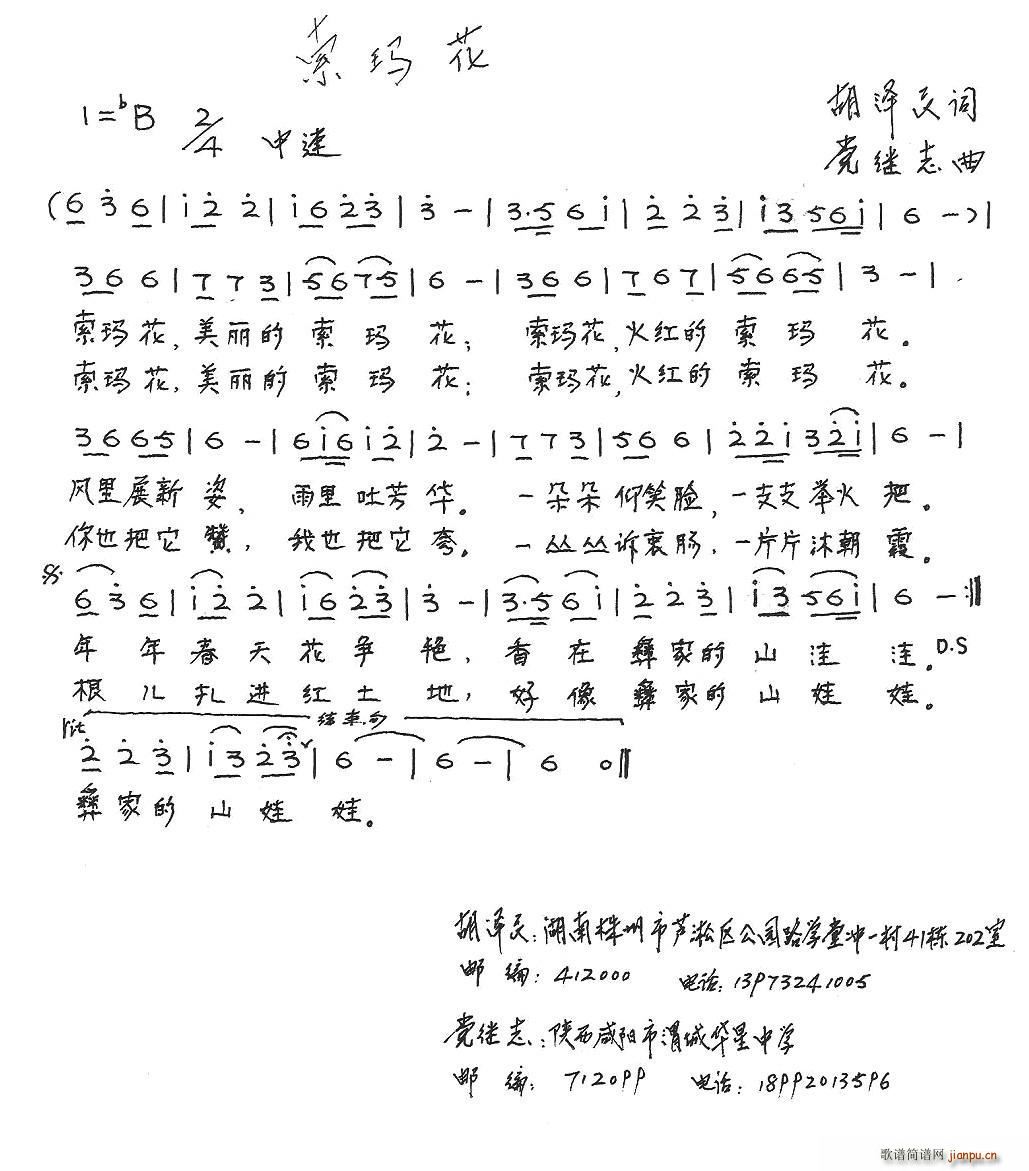 索玛花
1=♭B 2/4 中速
胡泽民词
党继志曲
(6 3̇ 6 | i 2̇ 2̇ | i 6 2̇ 3̇ | 3̇ - | 3·5 6 i | 2̇ 2̇ 3̇ | i 3 5 6 i | 6 -) |
3 6 6 | 7 7 3 | 5 6 7 5 | 6 - | 3 6 6 | 7 6 7 | 5 6 6 5 | 3 - |
索玛花,美丽的索玛花; 索玛花,火红的索玛花。
索玛花,美丽的索玛花; 索玛花,火红的索玛花。
3 6 6 5 | 6 - | 6 i 6 i 2̇ | 2̇ - | 7 7 3 | 5 6 6 | 2̇ 2̇ i 3 2̇ i | 6 - |
风里展新姿, 雨里吐芳华。 一朵朵仰笑脸,一支支举火把。
你也把它赞, 我也把它夸。 一丛丛诉衷肠,一片片沐朝霞。
6 3̇ 6 | i 2̇ 2̇ | i 6 2̇ 3̇ | 3̇ - | 3·5 6 i | 2̇ 2̇ 3̇ | i 3 5 6 i | 6 - :||
年年春天花争艳,香在彝家的山洼洼。 D.S
根儿扎进红土地,好像彝家的山娃娃。
rit 结束句
2̇ 2̇ 3̇ | i 3 2̇ 3̇ | 6 - | 6 - | 6 0 ||
彝家的山娃娃。
胡泽民:湖南株州市芦淞区公园路学堂冲一村41栋202室
邮编:412000 电话:13973241005
党继志:陕西咸阳市渭城华星中学
邮编:712099 电话:18992013596
歌谱简谱网
jianpu.cn